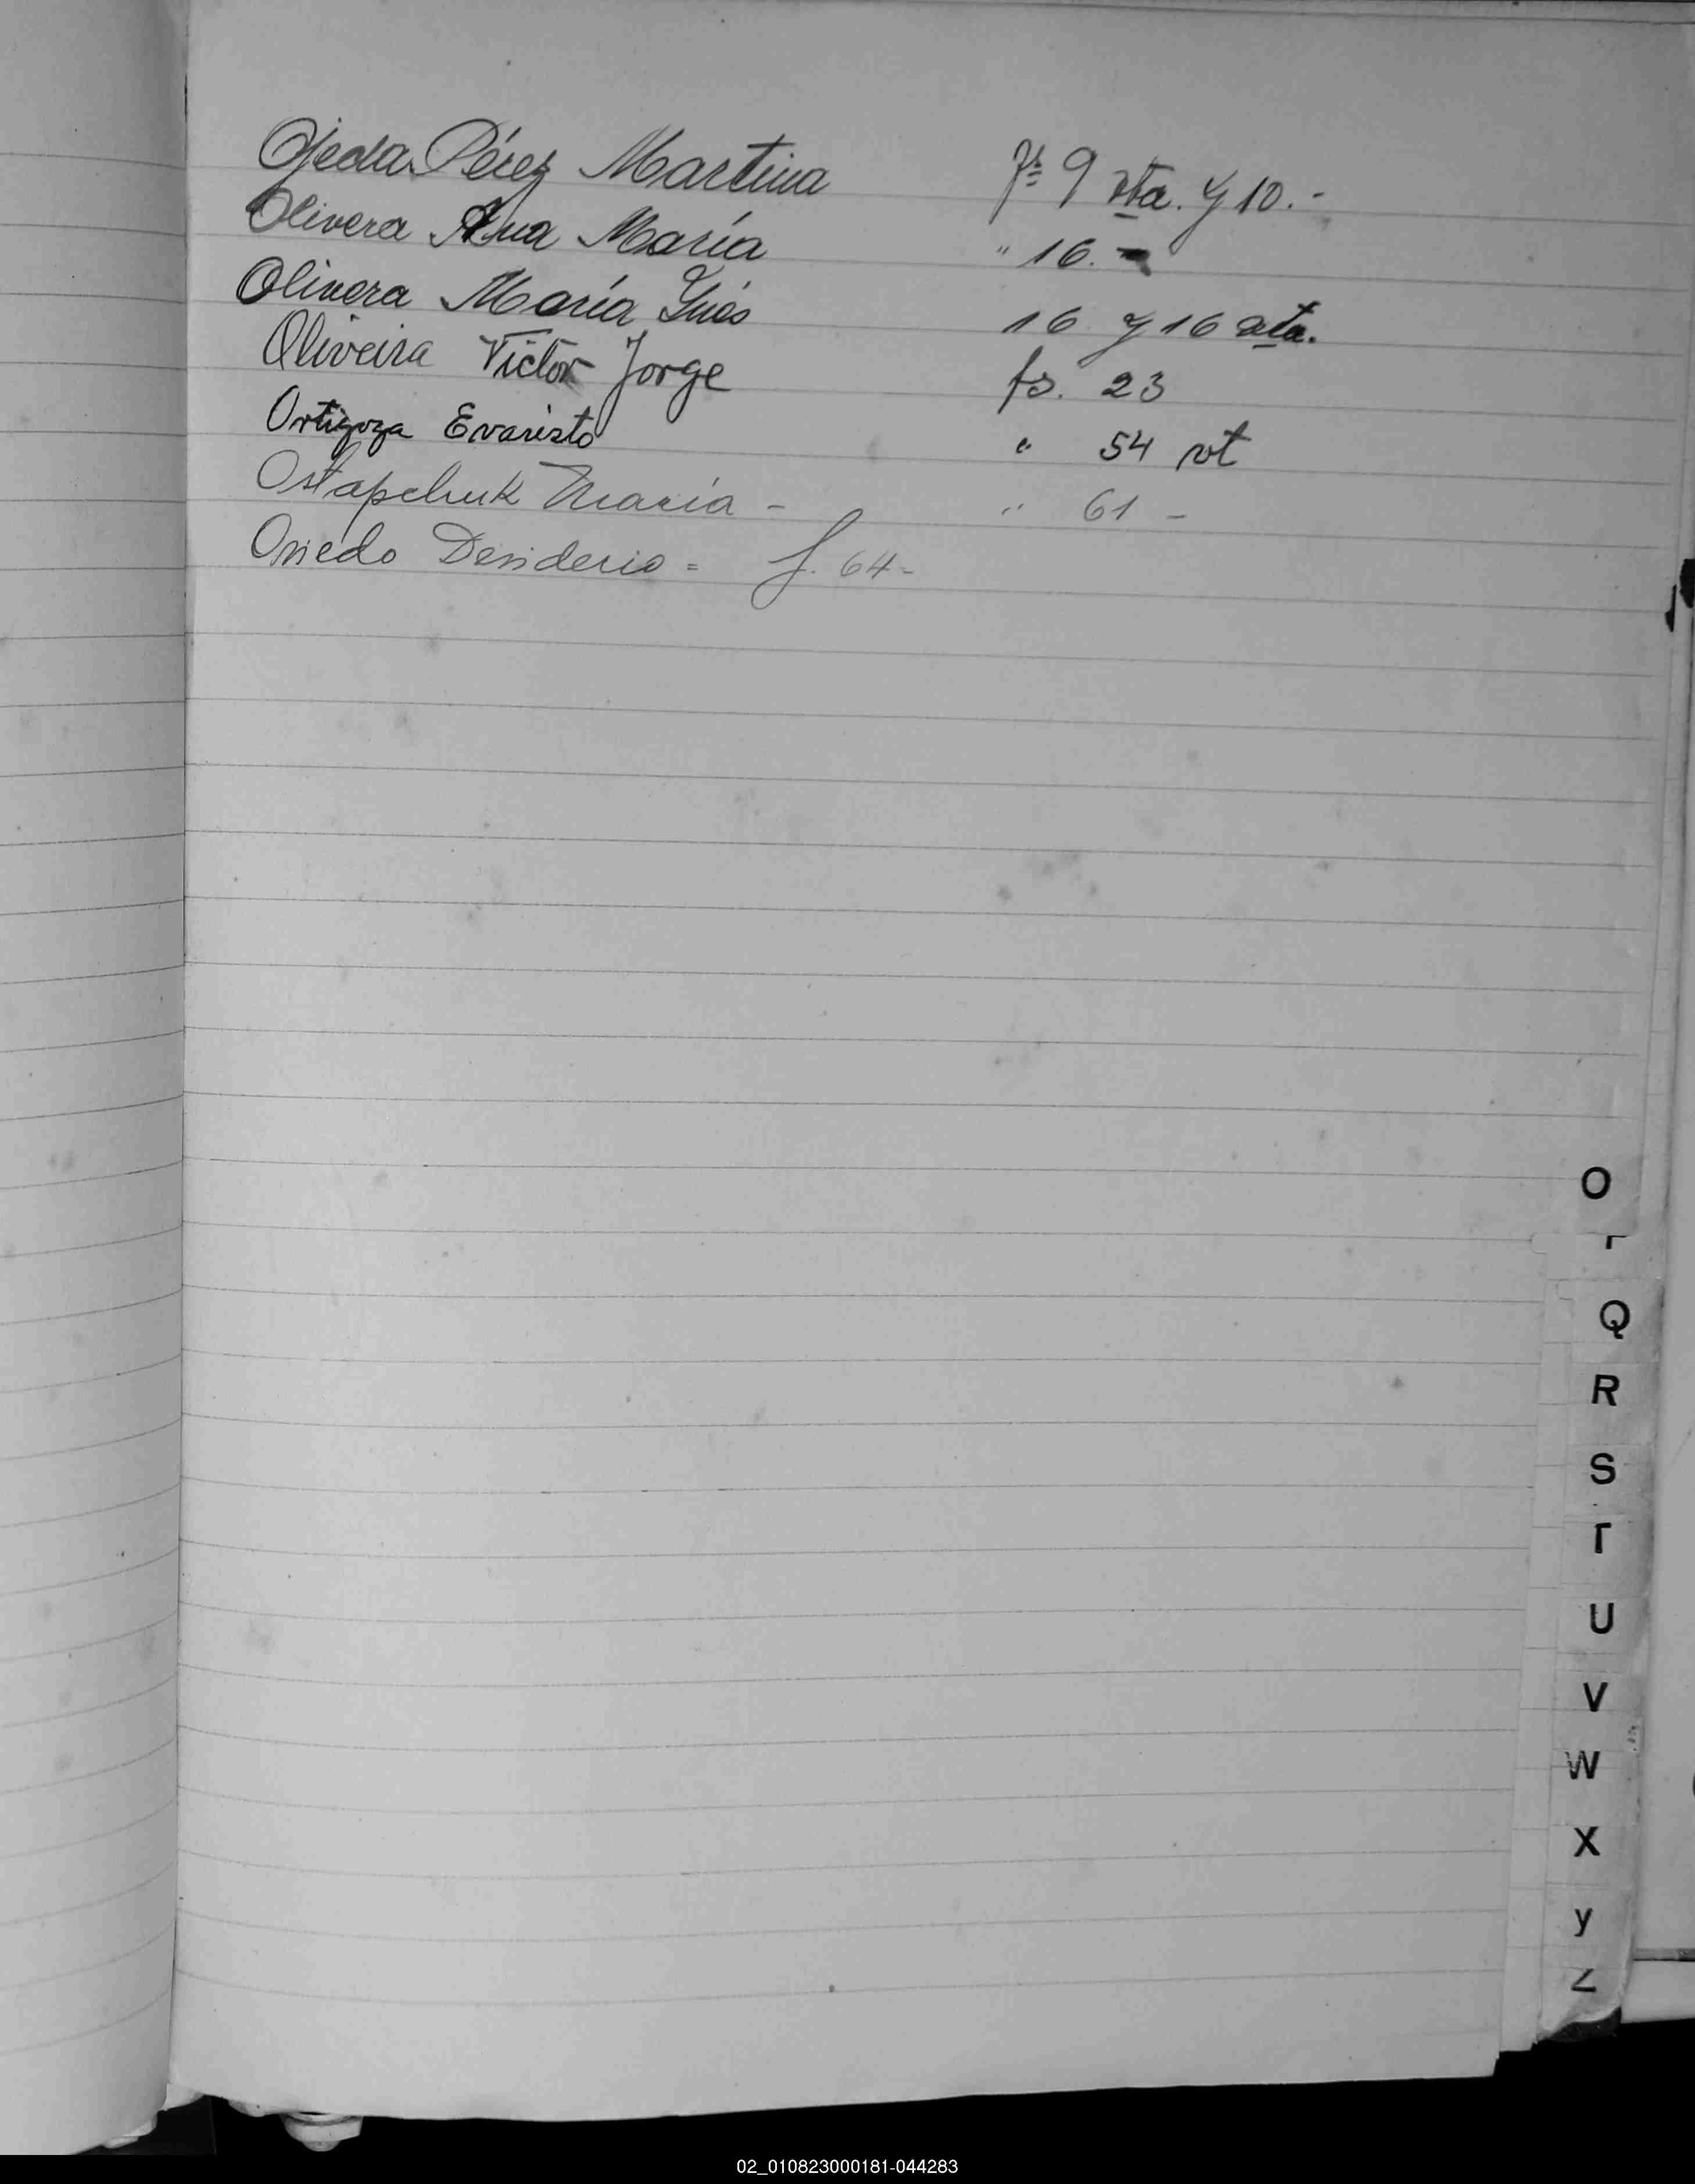 Ojeda Pérez Martina fs 9 vta. y 10.-
Olivera Ana María " 16.-
Olivera María Inés 16 y 16 vta.
Oliveira Víctor Jorge fs. 23
Ortigoza Evaristo " 54 vt
Ostapchuk María - " 61 -
Oviedo Desiderio = f. 64-
O
P
Q
R
S
T
U
V
W
X
y
Z
02_010823000181-044283